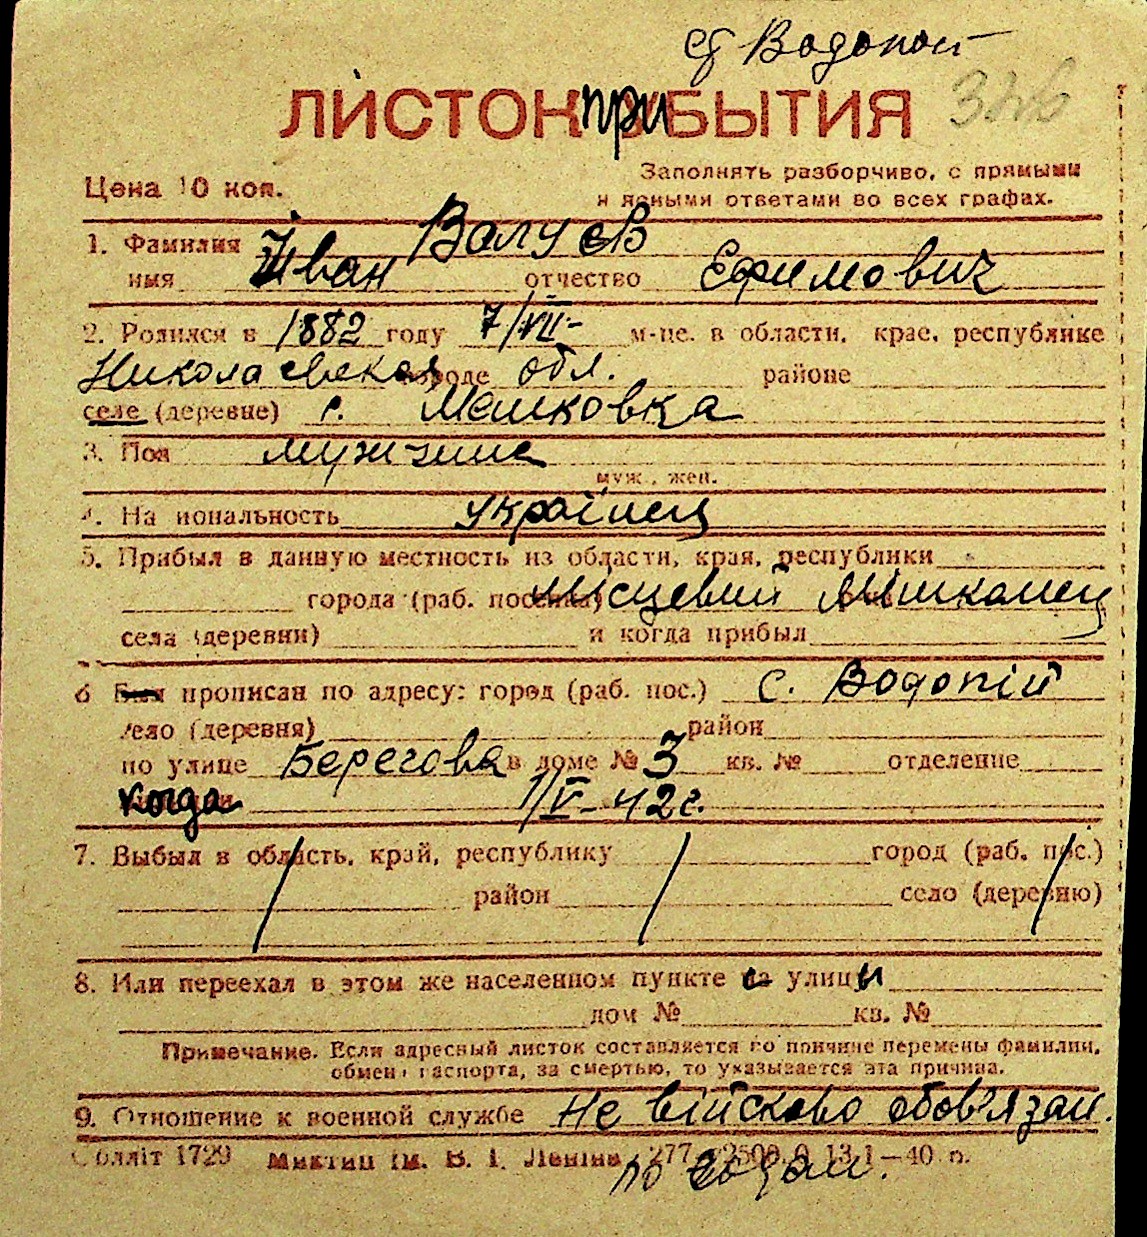 ст Водопой
ЛИСТОК ПРИБЫТИЯ
Цена 10 коп.
Заполнять разборчиво, с прямыми
и ясными ответами во всех графах.
1. Фамилия Валуев
имя Иван отчество Ефимович
2. Родился в 1882 году 7/VII- м-це. в области, крае, республике
Николаевская городе обл. районе
селе (деревне) с. Мешковка
3. Пол мужчина
муж., жен.
4. Национальность українец
5. Прибыл в данную местность из области, края, республики
города (раб. поселка) Місцевий Мішканец
села (деревни) и когда прибыл
6 Был прописан по адресу: город (раб. пос.) с. Водопій
село (деревня) район
по улице Берегова в доме № 3 кв. № отделение
когда 1/V-42 г.
7. Выбыл в область, край, республику город (раб. пос.)
район село (деревню)
8. Или переехал в этом же населенном пункте с улицы
дом № кв. №
Примечание. Если адресный листок составляется по причине перемены фамилии,
обмена паспорта, за смертью, то указывается эта причина.
9. Отношение к военной службе Не військово обов'язан.
Облліт 1729 Миктип ім. В. І. Леніна 13.1—40 п.
по годам.